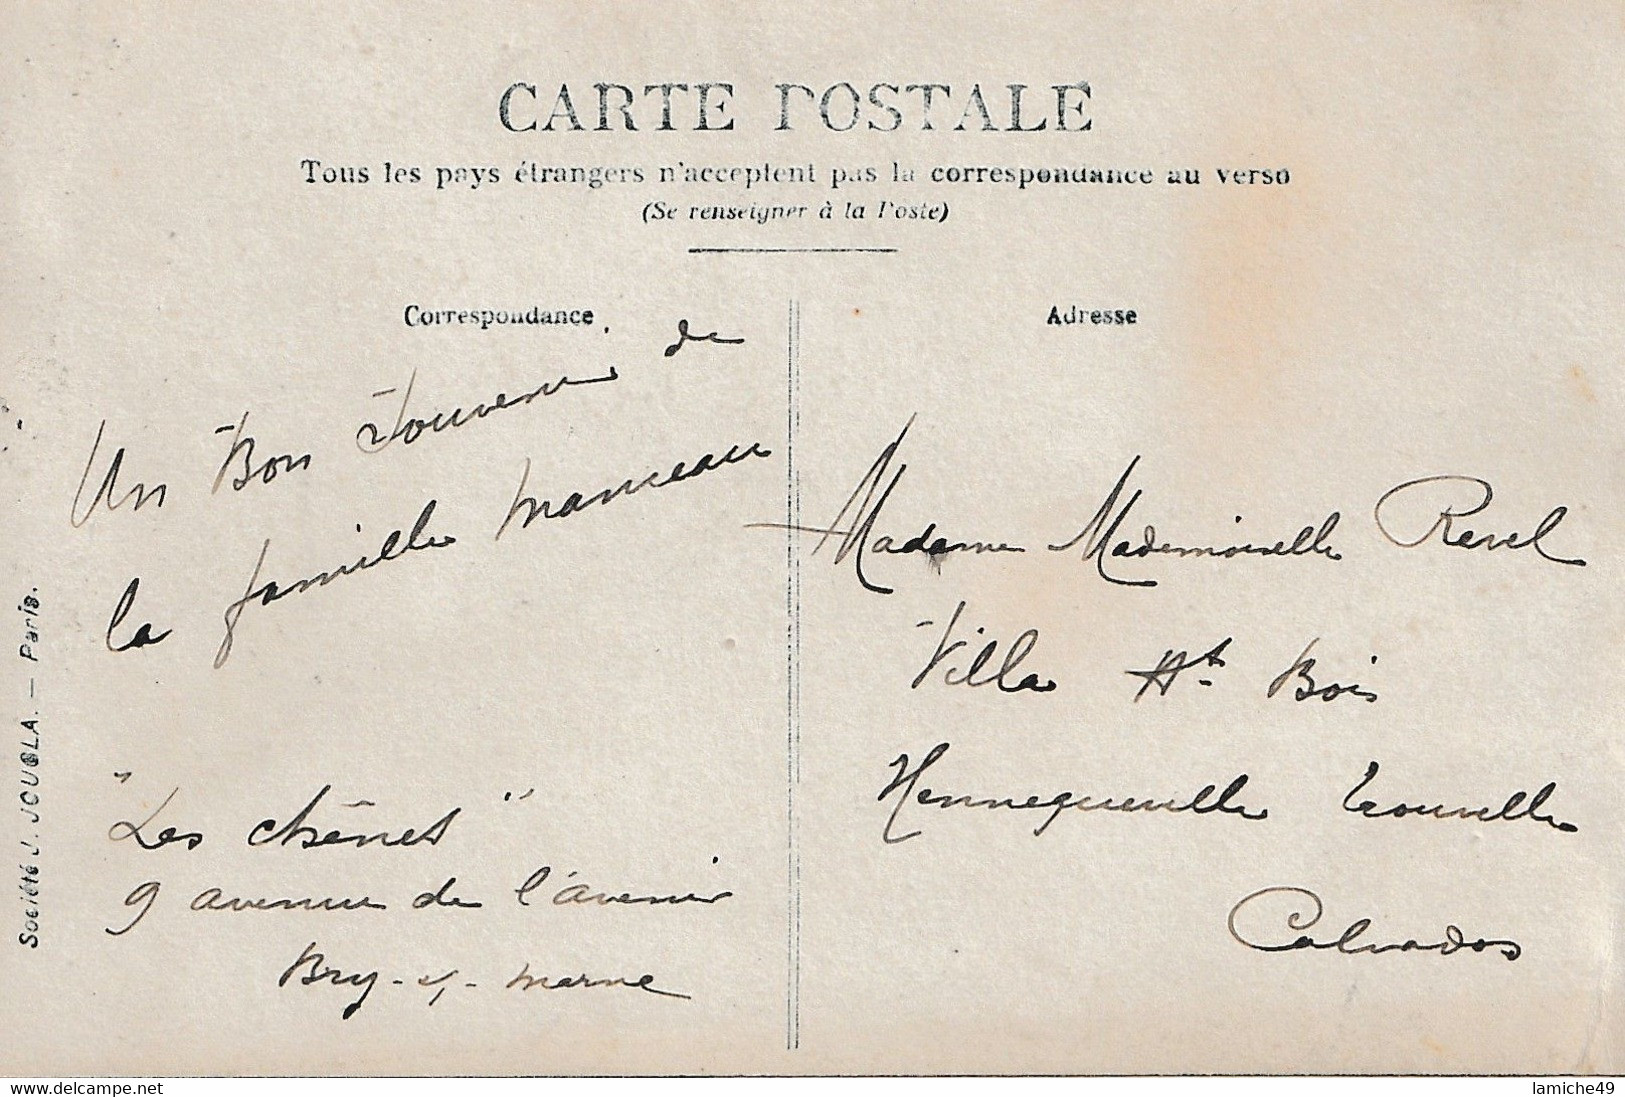 CARTE POSTALE
Tous les pays étrangers n'acceptent pas la correspondance au verso
(Se renseigner à la Poste)
Correspondance
Un Bon Souvenir de
la famille manceau
"Les chênes"
9 avenue de l'avenir
Bry-s/-marne
Adresse
Madame Mademoiselle Revel
Villa Ht Bois
Hennequeville Trouville
Calvados
Société J. JOUGLA. — Paris.
www.delcampe.net
lamiche49